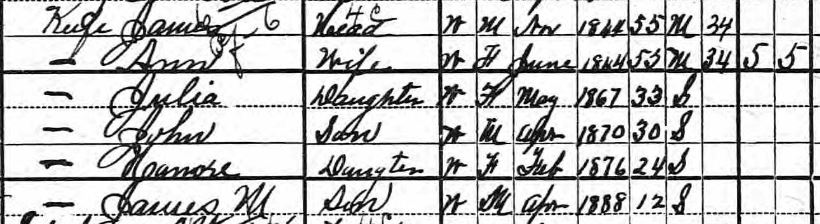 James Head W M Nov 1844 55 M 34
— Ann Wife W F June 1844 55 M 34 5 5
— Julia Daughter W F May 1867 33 S
— John Son W M Apr 1870 30 S
— Nanore Daugter W F Feb 1876 24 S
— James M Son W M Apr 1888 12 S